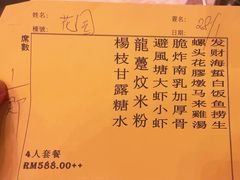 姓名: 花园
簽名:
檯號:
日期: 28/1
席數
发财海蜇白饭鱼捞生
螺头花膠燉马来雞湯
脆炸南乳加厚骨
避風塘大虾小虾
龍躉炆米粉
楊枝甘露糖水
4人套餐
RM588.00++